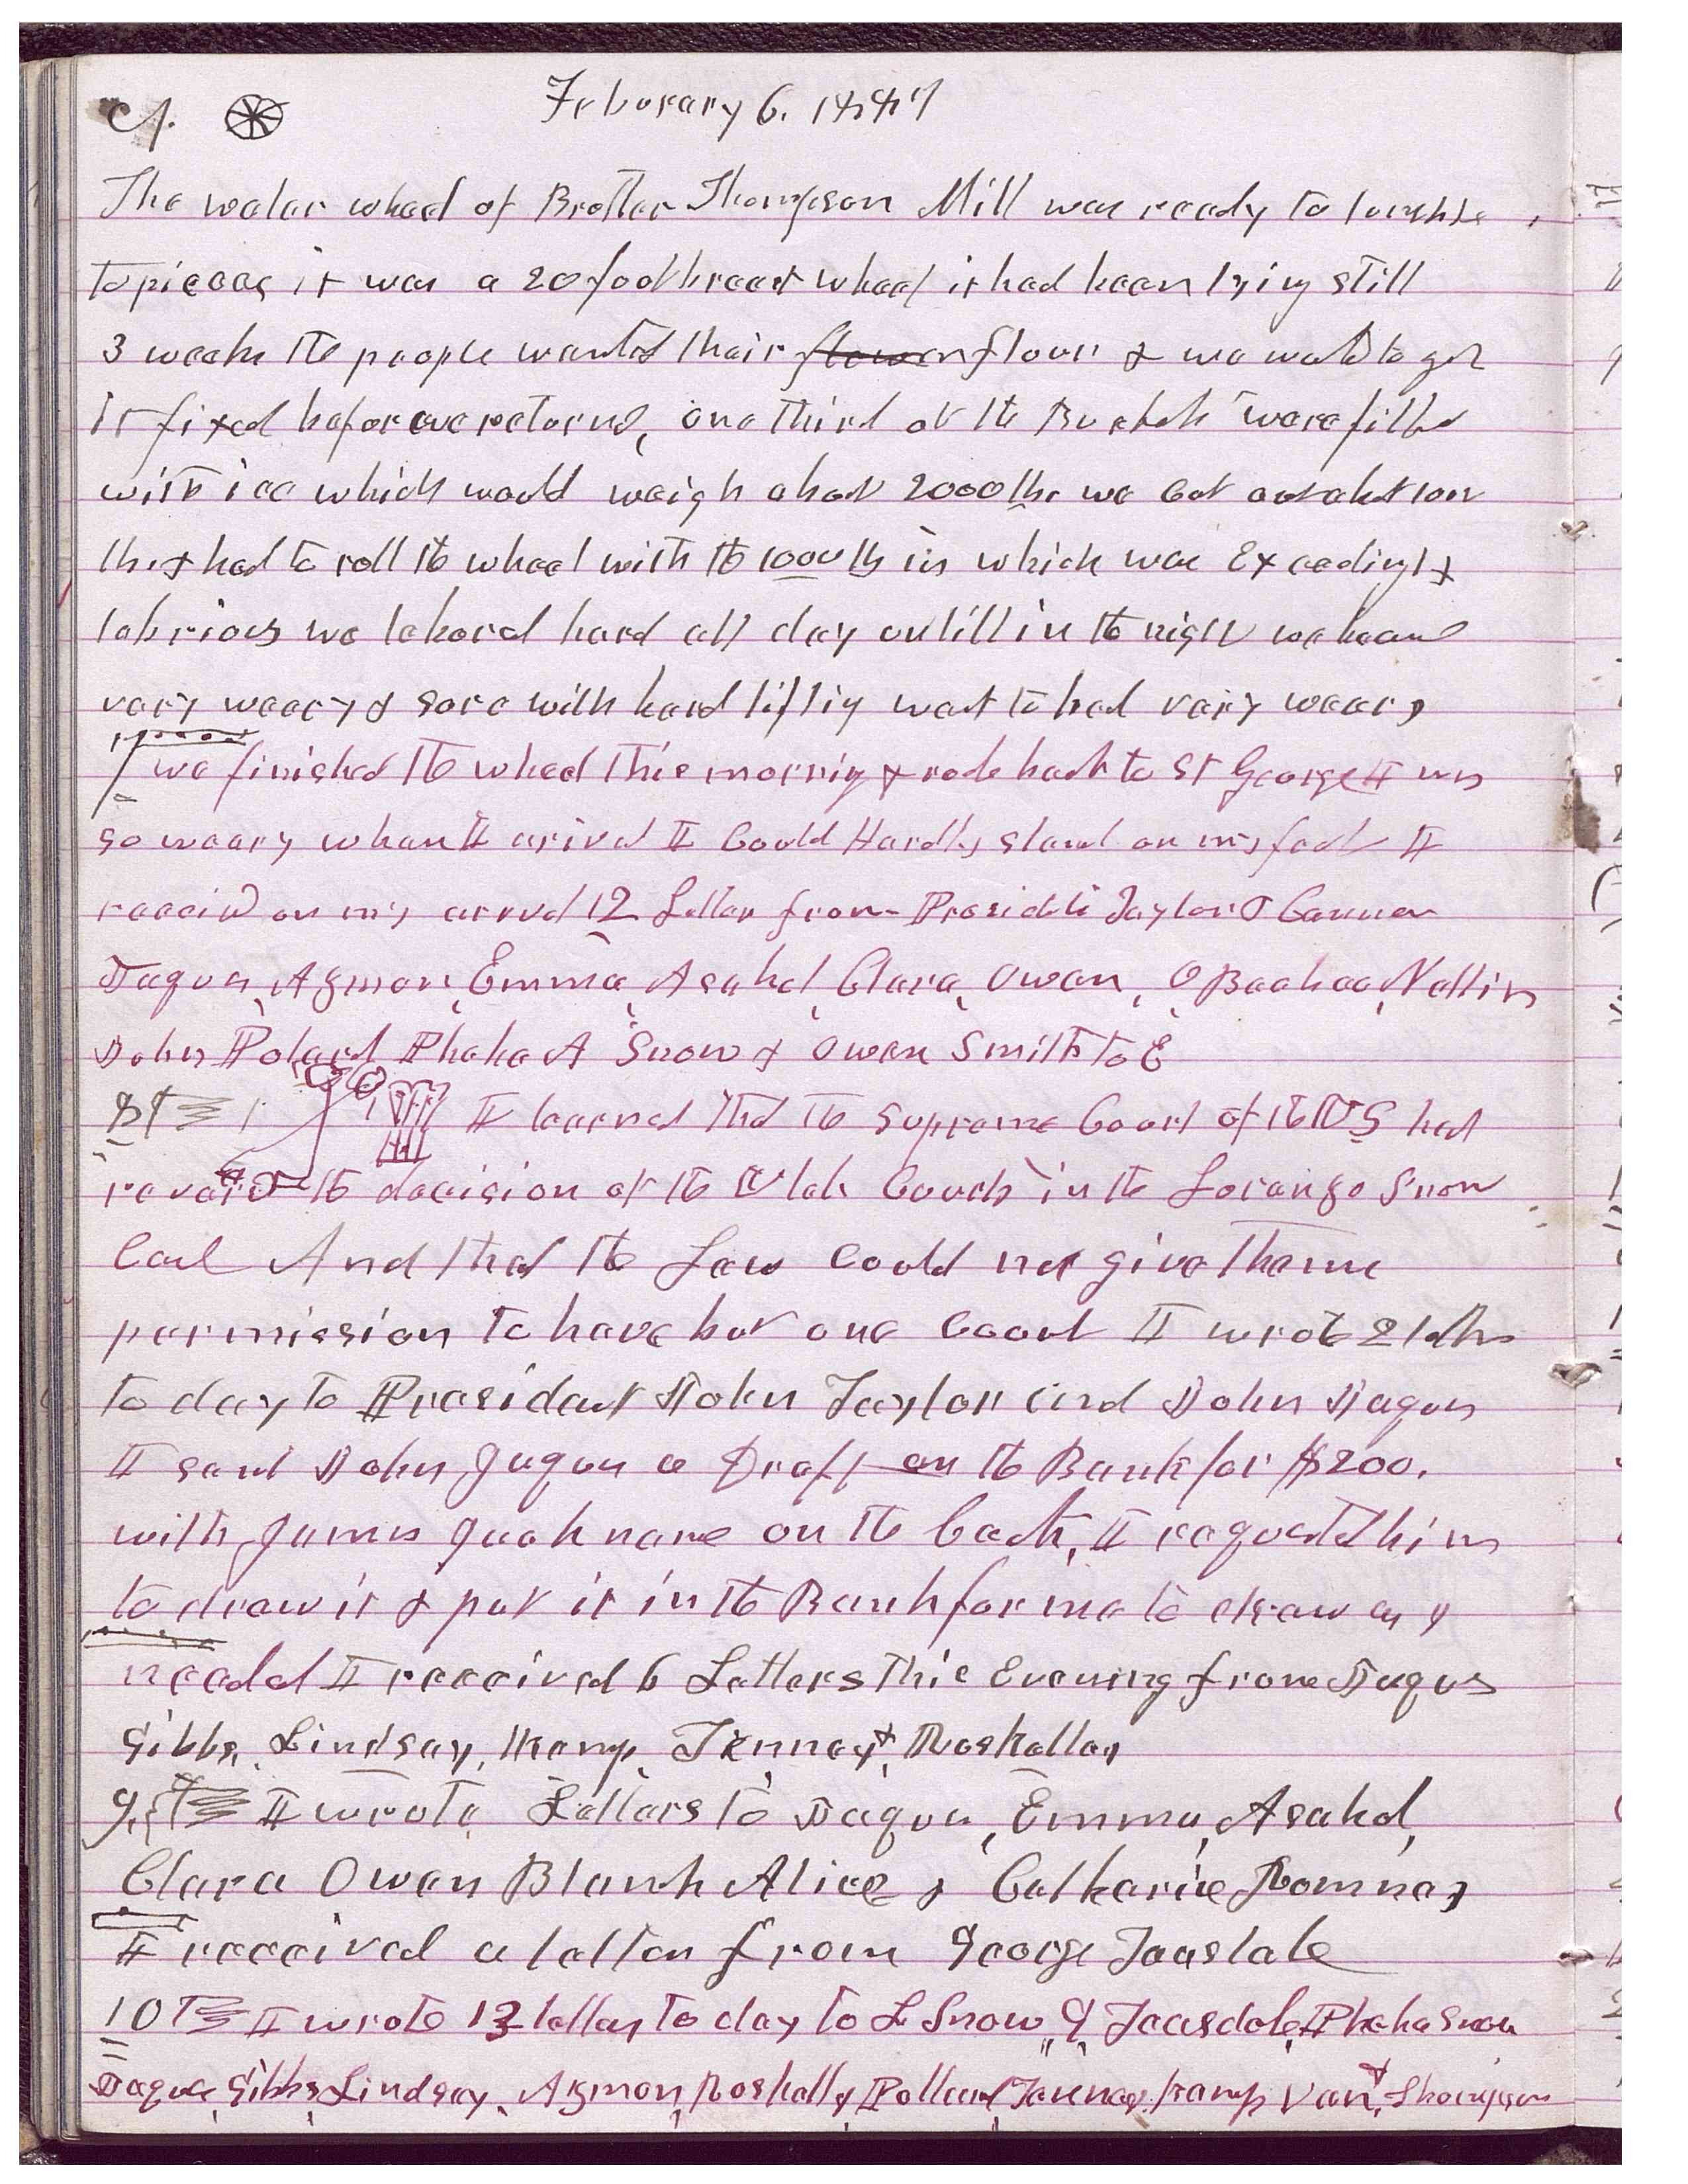 February 6. 1887
The water wheel of Brother Thompson Mill was ready to tumble
to pieces it was a 20 foot breast wheel it had been lying still
3 weeks the people wanted their flower flour & we wanted to get
it fixed before we returnd, one third of the Buckets were filled
with ice which would weigh about 2000 lbs we cut out about 1000
lbs & had to roll the wheel with the 1000 lb in which was Exceedingly
labrious we labored hard all day untill in the night we became
very weary & sore with hard lifting went to bed very weary
7 we finished the wheel this morning & rode back to St George I was
so weary when I arived I Could Hardly stand on my feet I
receivd on my arivel 12 Letters from Presidets Taylor & Cannon
Jaques, Azmon, Emma, Asahel, Clara, Owen, O Beebee, Nellie
John Polard Phebe A Snow & Owen Smith to E
8t I learned that the Supreme Court of the US had
reversed the decision of the Utah Courts in the Lorenzo Snow
Case And that the Law Could not give them
permission to have but one Count I wrote 2 letters
to day to President John Taylor and John Jaques
I sent John Jaques a Draft on the Bank for $200.
with James Jack name on the back, I requested him
to draw it & put it in the Bank for me to draw as I
needed I received 6 Letters this Evening from Jaques
Gibbs, Lindsay, Kemp, Tenney & Roskelley
9. I wrote Letters to Jaques, Emma, Asahel,
Clara Owen Blanch Alice & Catharine Romney
I received a letter from George Teasdale
10 I wrote 13 letters to day to L Snow, G Teasdale, Pheba Snow
Jaques, Gibbs, Lindsay, Azmon, Roskelly, Pollard, Tenney, Kemp Van, & Thompson